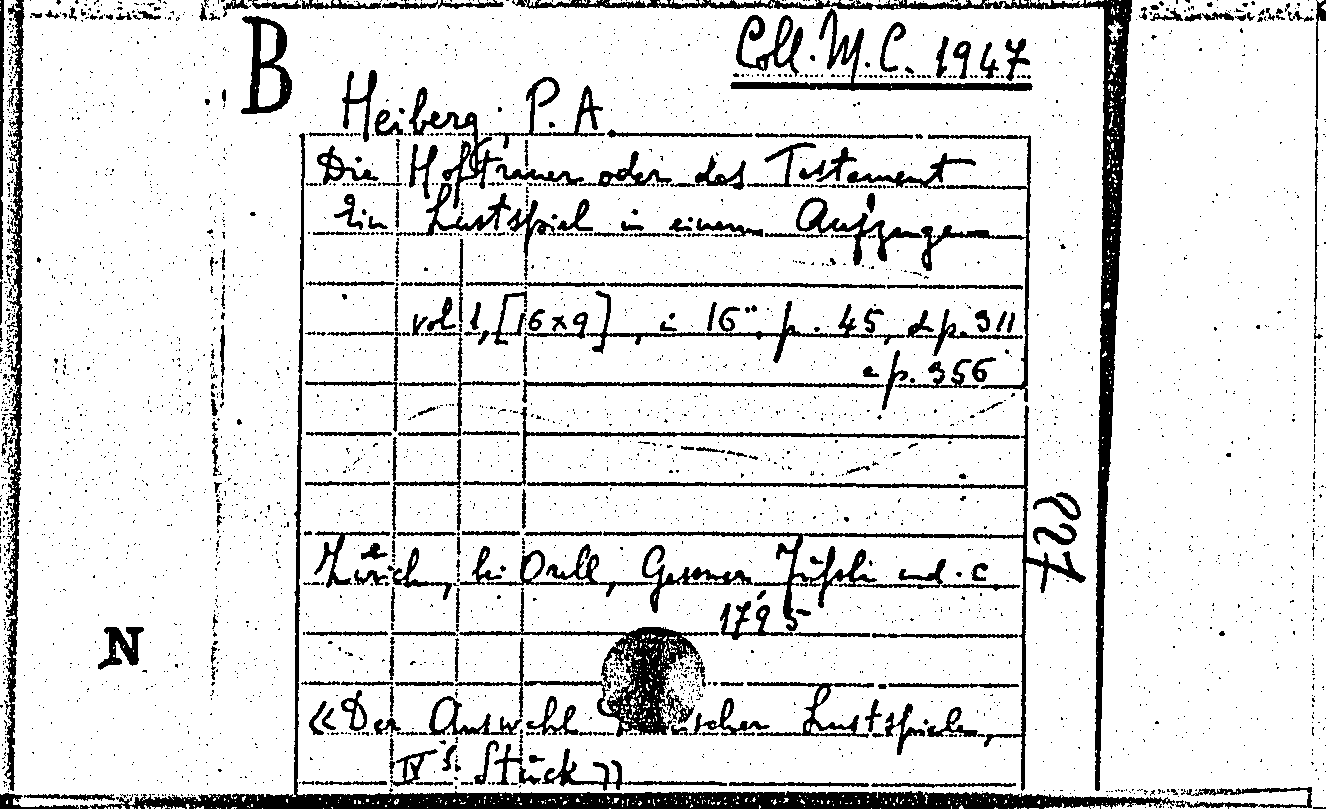 B
Coll. M. C. 1947
Heiberg, P. A.
Die Hoftrauer oder das Testament
Ein Lustspiel in einem Aufzuge
vol 1, [16x9], in 16°. p. 45, da p. 311
a p. 356
Zürich, bei Orell, Gessner, Füßli und. C.
1795
227
N
«Der Auswahl Lustspiele,
IVs. Stück»